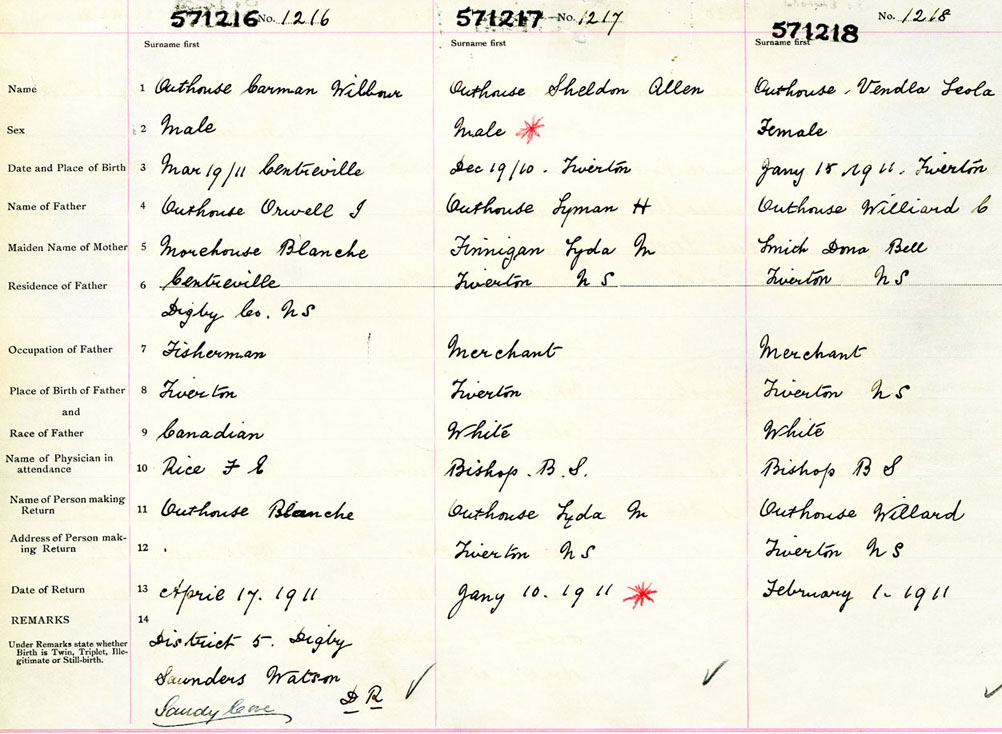 571216 No. 1216 571217 No. 1217 571218 No. 1218
Surname first Surname first Surname first
Name 1 Outhouse Carman Wilbour Outhouse Sheldon Allen Outhouse, Vendla Leola
Sex 2 Male Male Female
Date and Place of Birth 3 Mar 19/11 Centreville Dec 19/10. Tiverton Jany 18 1911. Tiverton
Name of Father 4 Outhouse Orwell I Outhouse Lyman H Outhouse Williard C
Maiden Name of Mother 5 Morehouse Blanche Finnigan Lyda M Smith Dona Bell
Residence of Father 6 Centreville Tiverton N S Tiverton N S
Digby Co. N S
Occupation of Father 7 Fisherman Merchant Merchant
Place of Birth of Father 8 Tiverton Tiverton Tiverton N S
and
Race of Father 9 Canadian White White
Name of Physician in
attendance 10 Rice F E Bishop. B. S. Bishop B S
Name of Person making
Return 11 Outhouse Blanche Outhouse Lyda M Outhouse Willard
Address of Person mak-
ing Return 12 Tiverton N S Tiverton N S
Date of Return 13 April 17. 1911 Jany 10. 1911 February 1. 1911
REMARKS 14
Under Remarks state whether
Birth is Twin, Triplet, Ille-
gitimate or Still-birth.
District 5. Digby
Saunders Watson
Sandy Cove D R